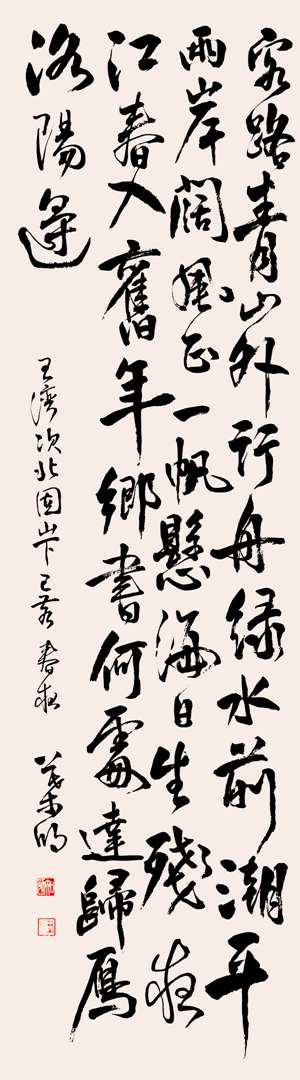 客路青山外行舟緑水前潮平
兩岸闊風正一帆懸海日生殘夜
江春入舊年鄉書何處達歸雁
洛陽邊
王灣次北固山下己亥春夜 明